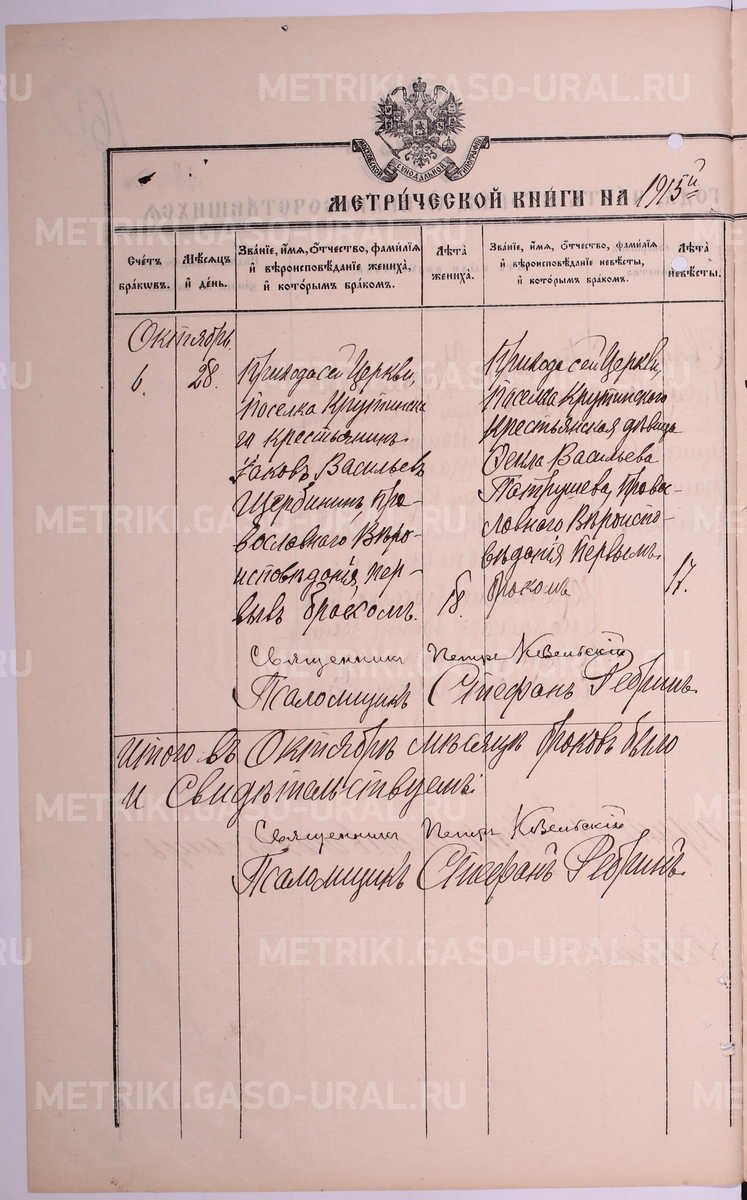 METRIKI.GASO-URAL.RU
МОСКОВСКОЙ СѴНОДАЛЬНОЙ ТИПОГРАФІИ
МЕТРИ́ЧЕСКОЙ КНИ́ГИ НА 1915й
Сче́тъ бра́кѡвъ.
Мѣ́сяцъ й де́нь.
Зва́нїе, и́мя, ѻ́тчество, фамѝлїя й вѣроисповѣ́данїе женихѝ, й кото́рымъ бра́комъ.
Лѣ́та жениха̀.
Зва́нїе, и́мя, ѻ́тчество, фамѝлїя й вѣроисповѣ́данїе невѣ́сты, й кото́рымъ бра́комъ.
Лѣ́та невѣ́сты.
Октябрь.
6.
28.
Прихода сей Церкви,
поселка Крутинска
го крестьянинъ
Іаковъ Васильевъ
Щербининъ, Пра-
вославнаго Вѣро-
исповѣданія, пер-
вымъ бракомъ.
18.
Прихода сей Церкви,
поселка Крутинскаго
крестьянская дѣвица
Ѳекла Васильева
Патрушева, Право-
славнаго Вѣроиспо-
вѣданія первымъ
бракомъ
17.
Священникъ Петръ Ковельскій
Псаломщикъ Стефанъ Ребринъ
Итого въ Октябрѣ мѣсяцѣ браковъ было
и Свидѣтельствуемъ:
Священникъ Петръ Ковельскій
Псаломщикъ Стефанъ Ребринъ.